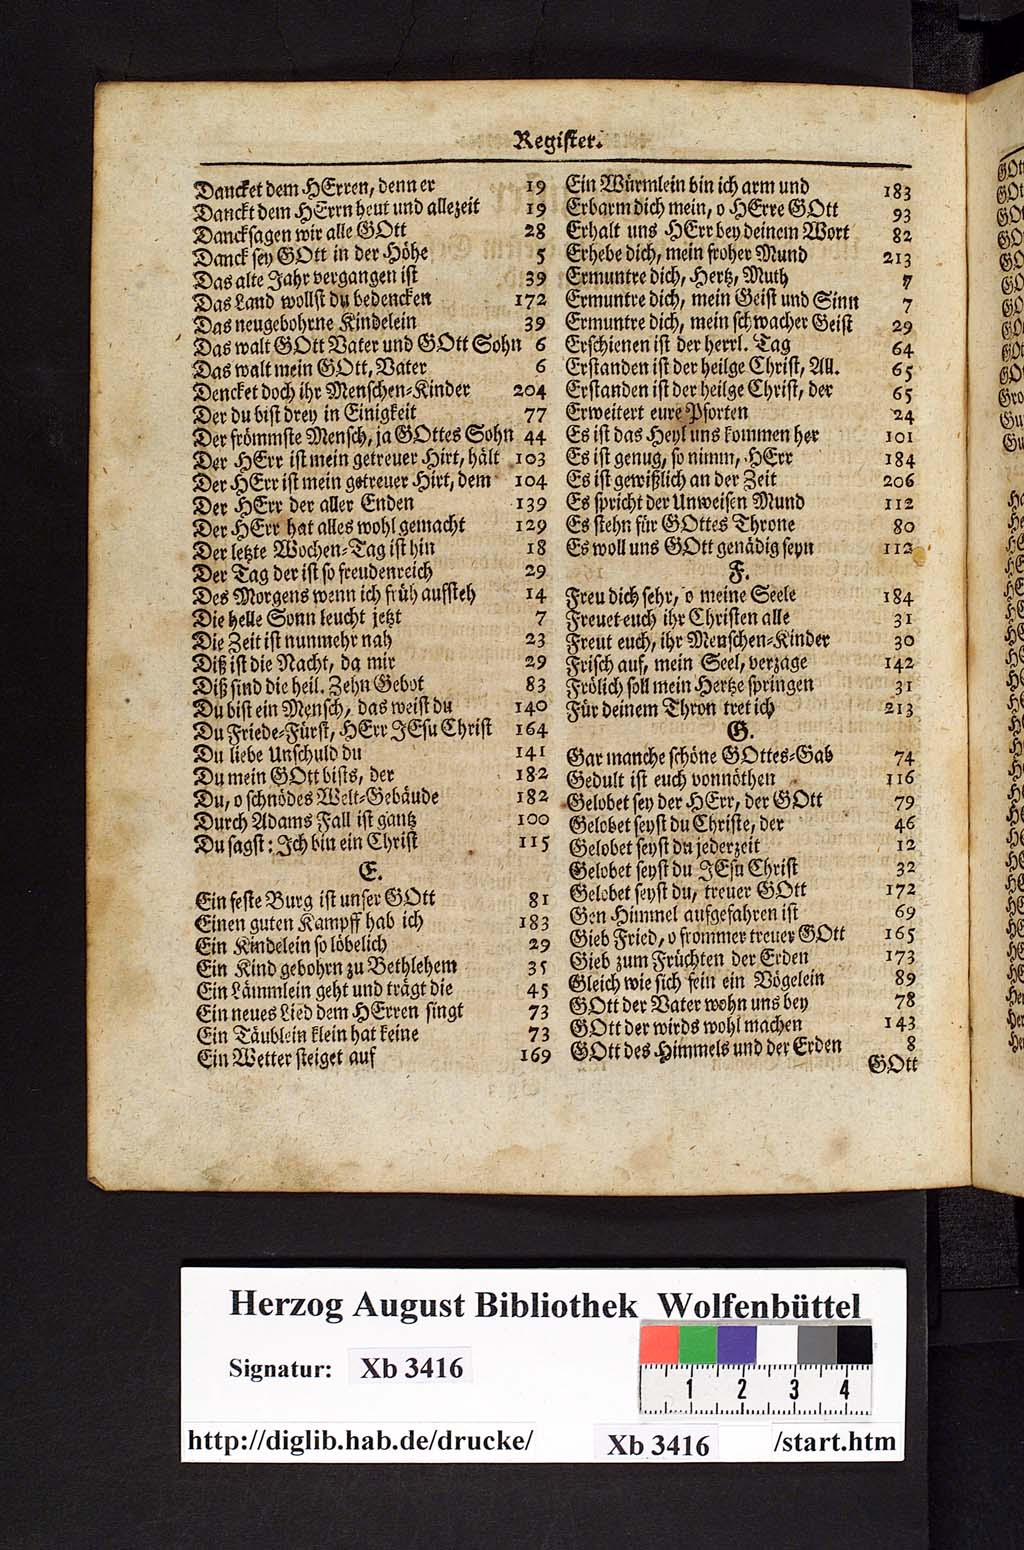 Register.
Dancket dem HErren, denn er 19
Danckt dem HErrn heut und allezeit 19
Dancksagen wir alle GOtt 28
Danck sey GOtt in der Höhe 5
Das alte Jahr vergangen ist 39
Das Land wollst du bedencken 172
Das neugebohrne Kindelein 39
Das walt GOtt Vater und GOtt Sohn 6
Das walt mein GOtt, Vater 6
Dencket doch ihr Menschen-Kinder 204
Der du bist drey in Einigkeit 77
Der frömmste Mensch, ja GOttes Sohn 44
Der HErr ist mein getreuer Hirt, hält 103
Der HErr ist mein getreuer Hirt, dem 104
Der HErr der aller Enden 139
Der HErr hat alles wohl gemacht 129
Der letzte Wochen-Tag ist hin 18
Der Tag der ist so freudenreich 29
Des Morgens wenn ich früh aufsteh 14
Die helle Sonn leucht jetzt 7
Die Zeit ist nunmehr nah 23
Diß ist die Nacht, da mir 29
Diß sind die heil. Zehn Gebot 83
Du bist ein Mensch, das weist du 140
Du Friede-Fürst, HErr JEsu Christ 164
Du liebe Unschuld du 141
Du mein GOtt bists, der 182
Du, o schnödes Welt-Gebäude 182
Durch Adams Fall ist gantz 100
Du sagst: Ich bin ein Christ 115
E.
Ein feste Burg ist unser GOtt 81
Einen guten Kampff hab ich 183
Ein Kindelein so löbelich 29
Ein Kind gebohrn zu Bethlehem 35
Ein Lämmlein geht und trägt die 45
Ein neues Lied dem HErren singt 73
Ein Täublein klein hat keine 73
Ein Wetter steiget auf 169
Ein Würmlein bin ich arm und 183
Erbarm dich mein, o HErre GOtt 93
Erhalt uns HErr bey deinem Wort 82
Erhebe dich, mein froher Mund 213
Ermuntre dich, Hertz, Muth 7
Ermuntre dich, mein Geist und Sinn 7
Ermuntre dich, mein schwacher Geist 29
Erschienen ist der herrl. Tag 64
Erstanden ist der heilge Christ, All. 65
Erstanden ist der heilge Christ, der 65
Erweitert eure Pforten 24
Es ist das Heyl uns kommen her 101
Es ist genug, so nimm, HErr 184
Es ist gewißlich an der Zeit 206
Es spricht der Unweisen Mund 112
Es stehn für GOttes Throne 80
Es woll uns GOtt genädig seyn 112
F.
Freu dich sehr, o meine Seele 184
Freuet euch ihr Christen alle 31
Freut euch, ihr Menschen-Kinder 30
Frisch auf, mein Seel, verzage 142
Frölich soll mein Hertze springen 31
Für deinem Thron tret ich 213
G.
Gar manche schöne GOttes-Gab 74
Gedult ist euch vonnöthen 116
Gelobet sey der HErr, der GOtt 79
Gelobet seyst du Christe, der 46
Gelobet seyst du jederzeit 12
Gelobet seyst du JEsu Christ 32
Gelobet seyst du, treuer GOtt 172
Gen Himmel aufgefahren ist 69
Gieb Fried, o frommer treuer GOtt 165
Gieb zum Früchten der Erden 173
Gleich wie sich fein ein Vögelein 89
GOtt der Vater wohn uns bey 78
GOtt der wirds wohl machen 143
GOtt des Himmels und der Erden 8
GOtt
Herzog August Bibliothek Wolfenbüttel
Signatur: Xb 3416
1 2 3 4
http://diglib.hab.de/drucke/ Xb 3416 /start.htm